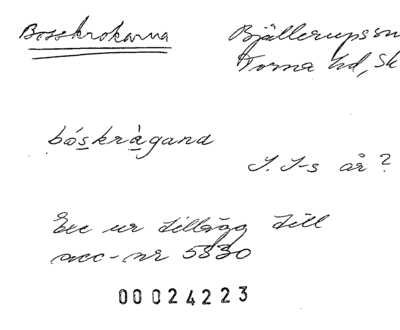 Bosskrokarna
Bjällerups sn
Torna hd, Sk
bóskràgand
I. I-s år?
Exc ur tillägg till
acc-nr 5330
00024223